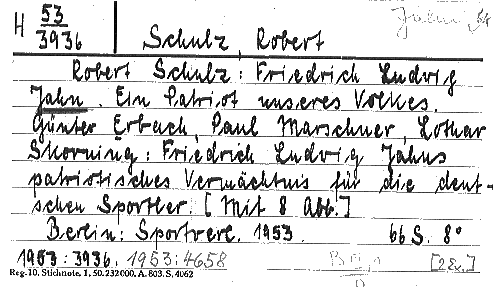 H 53/3936 Schulz, Robert Jahn,
Robert Schulz: Friedrich Ludwig
Jahn. Ein Patriot unseres Volkes.
Günter Erbach, Paul Marschner, Lothar
Skorning: Friedrich Ludwig Jahns
patriotisches Vermächtnis für die deut-
schen Sportler. [Mit 8 Abb.]
Berlin: Sportverl. 1953. 66 S. 8°
1953:3936. 1953:4658 [2 Ex.]
Reg. 10. Stichnote. 1, 50. 232000. A. 803. S. 4062